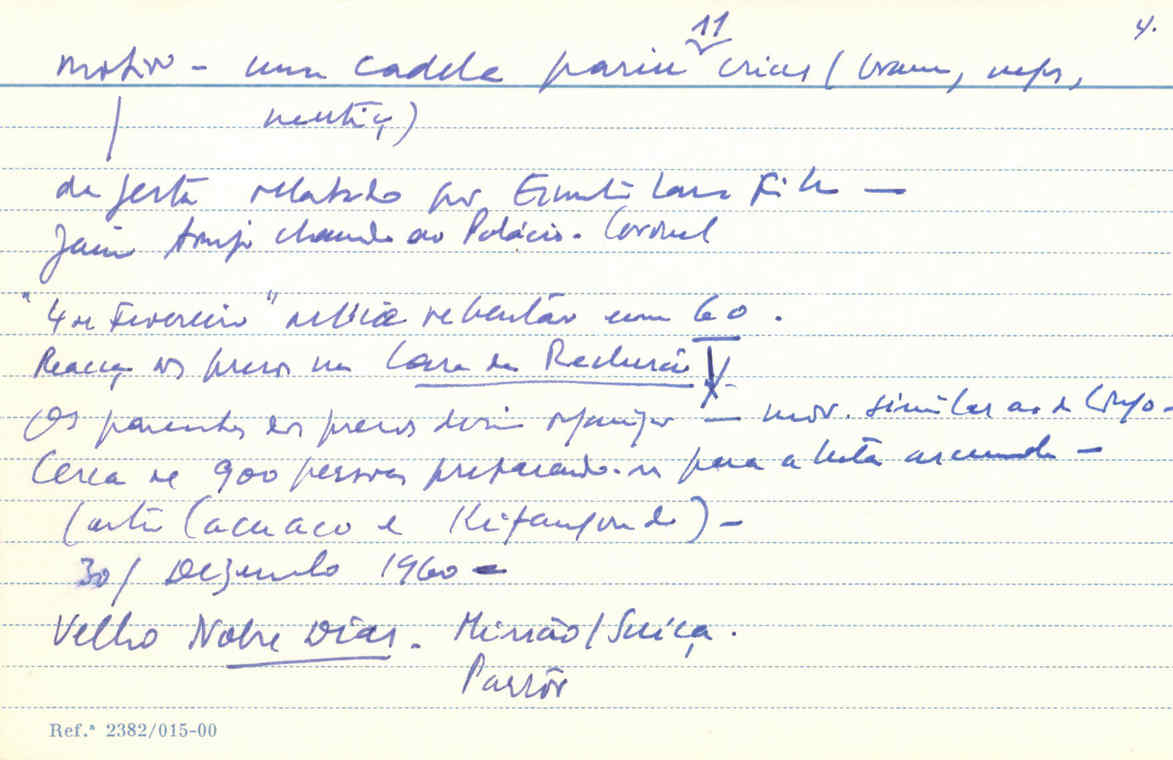 4.
motivo - uma cadela pariu 11 crias (brancas, negras,
mestiças)
da festa relatado por Ernesto Lara Filho —
Jaime Araújo chamado ao Palácio. Coronel
"4 de Fevereiro" rebentar em 60.
Reacção dos presos na Casa de Reclusão
Os parentes dos presos deviam organizar — mov. similar ao do Congo -
Cerca de 900 pessoas preparando-se para a luta armada -
(entre Cacuaco e Kifangondo) -
30/ Dezembro 1960 -
Velho Nobre Dias. Missão/Suíça.
Pastor
Ref.ª 2382/015-00